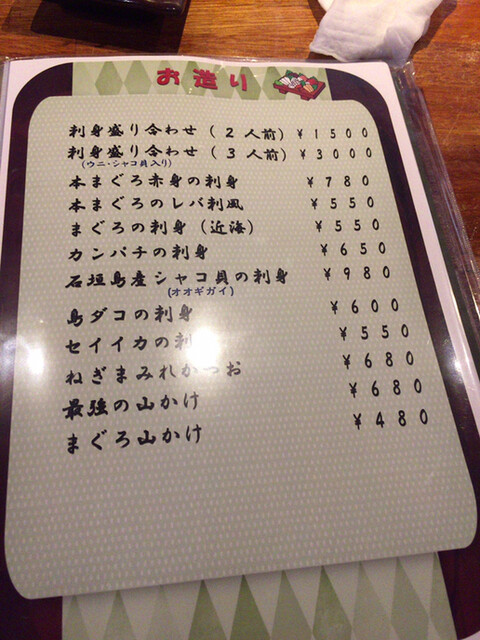 お造り
刺身盛り合わせ(2人前) ¥1500
刺身盛り合わせ(3人前) ¥3000
(ウニ・シャコ貝入り)
本まぐろ赤身の刺身 ¥780
本まぐろのレバ刺風 ¥550
まぐろの刺身(近海) ¥550
カンパチの刺身 ¥650
石垣島産シャコ貝の刺身 ¥980
(オオギガイ)
島ダコの刺身 ¥600
セイイカの刺 ¥550
ねぎまみれかつお ¥680
最強の山かけ ¥680
まぐろ山かけ ¥480